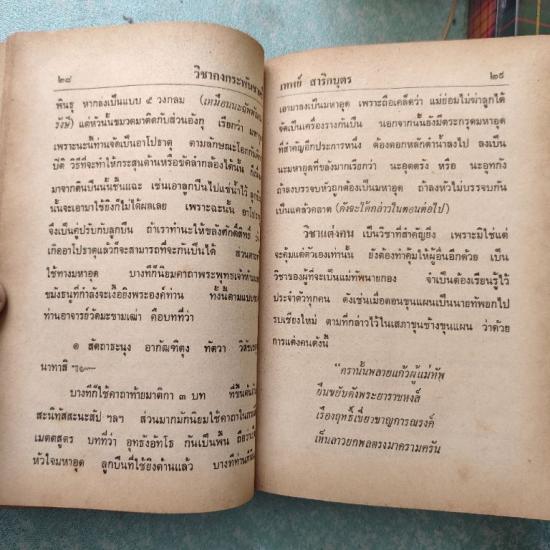 ๒๘ วิชาคงกระพันชา
พันธุ หากลงเป็นแบบ ๕ วงกลม
รังษี) แต่หัวนั้นขมวดมาติดกับส่วนอังกุ เรียกว่า
เพราะฉะนี้ท่านจัดเป็นอาโปธาตุ ตามลักษณะโอก
บัติ วิธีที่จะทำให้กระสุนด้านหรือขัดลำกล้องได้นั้น
มาจากต้นปืนนั้นขึ้นแฉะ เช่นเอาลูกปืนไปแช่น้ำไว้
นั้นจะเอามาใช้ยิงก็ไม่ได้ผลเลย เพราะฉะนั้น อาโป
จึงเป็นคู่ปรับกับลูกปืน ถ้าเราทำนะให้ขลังศักดิ์สิทธิ์
เกิดอาโปธาตุแล้วก็จะสามารถที่จะกันปืนได้
ใช้ทางมหาอุด บางทีก็นิยมคาถาพระพุทธเจ้าห้าม
ขมังธนูที่กำลังจะเงื้อยิงพระองค์ท่าน ทั้งนี้ตามแบบ
ท่านอาจารย์วัดมะขามเฒ่า คือบทที่ว่า
๑ สัตถาธะนุง อากัฒฑิตุง ทัตวา
นาทาสิ
บางทีก็ใช้คาถาท้ายมาติกา ๓ บท
สะนิทัสสะนะสัป ฯลฯ ส่วนมากมักนิยมใช้คาถา
เมตตสูตร บทที่ว่า อุทธังอัทโธ กันเป็นพื้น
หัวใจมหาอุด ลูกปืนที่ใช้ยิงด้านแล้ว
เทพย์ สาริกบุตร ๒๙
เอามาลงเป็นมหาอุด เพราะถือเคล็ดว่า แม่ย่อมไม่ฆ่าลูกได้
จัดเป็นเครื่องรางกันปืน นอกจากนั้นยังมีตระกรุดมหาอุด
ที่สำคัญอีกประการหนึ่ง ต้องตอกหลักดำน้ำลงไป ลงเป็น
นะมหาอุดที่ขลังมากเรียกว่า นะอุดตรัง หรือ นะอุทกัง
ถ้าลงบรรจบหัวถูกต้องเป็นมหาอุด ถ้าลงหัวไม่บรรจบกัน
เป็นแคล้วคลาด (ดังจะได้กล่าวในตอนต่อไป)
วิชาแต่งคน เป็นวิชาที่สำคัญยิ่ง เพราะมิใช่แต่
จะคุ้มแต่ตัวเองเท่านั้น ยังต้องทำคุ้มให้ผู้อื่นอีกด้วย เป็น
วิชาของผู้ที่จะเป็นแม่ทัพนายกอง จำเป็นต้องเรียนรู้ไว้
ประจำตัวทุกคน ดังเช่นเมื่อตอนขุนแผนเป็นนายทัพยกไป
รบเชียงใหม่ ตามที่กล่าวไว้ในเสภาขุนช้างขุนแผน ว่าด้วย
การแต่งคนดังนี้
"ครานั้นพลายแก้วผู้แม่ทัพ
ยืนขยับดังพระยาราชหงส์
เรืองฤทธิ์เชี่ยวชาญการณรงค์
เห็นลาวยกพลตรงมาครามครัน